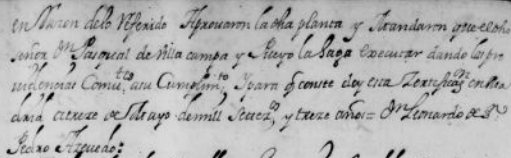 en Razon delo Referido Aprovaron la dha planta y Mandaron que el dho
señor Dn Pasqual de villa campa y Pueyo la haga executar dando las pro
videnzias Comu.tes asu Cumplim.to Ypara q conste doy esta Zertificazn en Ma
drid a treze de Mayo de mill Setezs y treze años = Dn Leonardo de Sn
Pedro Azevedo: